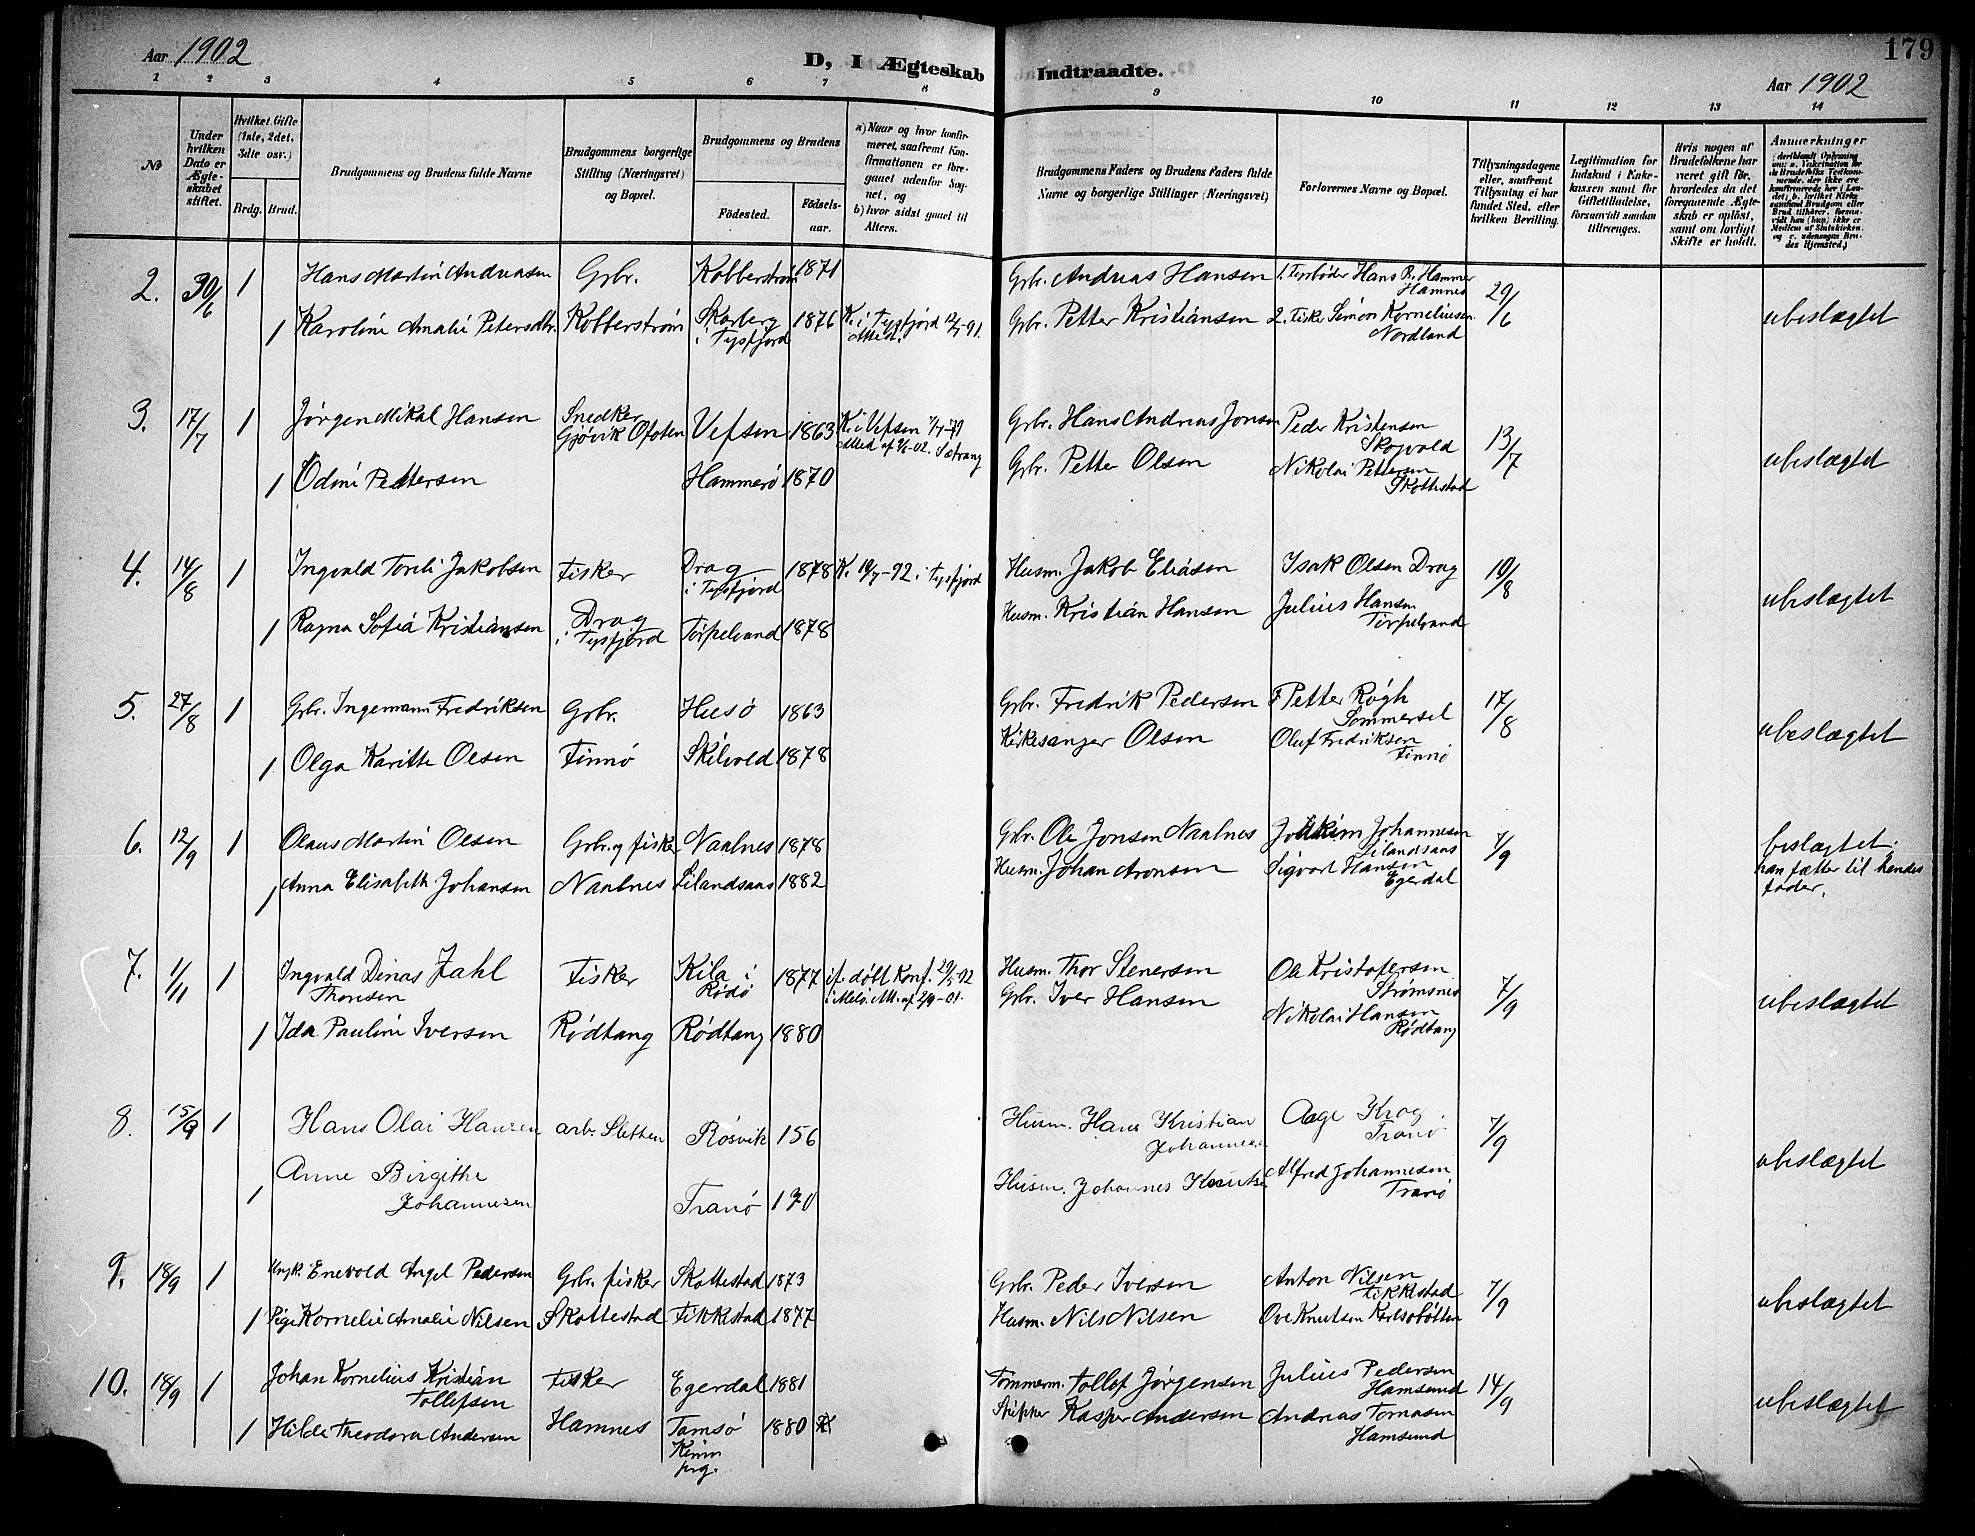 Aar 1902
D, I Ægteskab Indtraadte.
179
Aar 1902
1 2 3 4 5 6 7 8 9 10 11 12 13 14
No
Under hvilken Dato er Ægteskabet stiftet.
Hvilket Gifte (1ste, 2det, 3die osv.)
Brdg. Brud.
Brudgommens og Brudens fulde Navne
Brudgommens borgerlige Stilling (Næringsvei) og Bopæl.
Brudgommens og Brudens
Fødested.
Fødselsaar.
a) Naar og hvor konfirmeret, saafremt Konfirmationen er foregaaet udenfor Sognet, og
b) hvor sidst gaaet til Alters.
Brudgommens Faders og Brudens Faders fulde Navne og borgerlige Stillinger (Næringsvei)
Forlovernes Navne og Bopæl.
Tillysningsdagene eller, saafremt Tillysning ei har fundet Sted, efter hvilken Bevilling.
Legitimation for Indskud i Enkekassen samt for Giftetilladelse, forsaavidt saadan tiltrænges.
Hvis nogen af Brudefolkene har været gift før, hvorledes da det foregaaende Ægteskab er opløst, samt om lovligt Skifte er holdt.
Anmærkninger
2. 30/6 1 Hans Martin Andreasen Grbr. Kobberstrøm 1871 Grbr. Andreas Hansen 1. Hans P. Hammer Hamnes 29/6
1 Karoline Amalie Petersdtr. Kobberstrøm Skarberg i Tysfjord 1876 K. i Tysfjord 12/7-91. Grbr. Petter Kristiansen 2. Fisker Simon Korneliusen Nordland ubeslægtet
3. 17/7 1 Jørgen Mikal Hansen Snedker Gjøvik Ofoten Vefsen 1863 K. i Vefsen Grbr. Hans Andreas Jonsen Peder Kristensen Skogvold 13/7
1 Odine Pettersen Hammerø 1870 Grbr. Petter Olsen Nikolai Pettersen Skottestad ubeslægtet
4. 14/8 1 Ingvald Toreli Jakobsen Fisker Drag i Tysfjord 1878 K. 10/7-92 i Tysfjord Husm. Jakob Eliasen Isak Olsen Drag 10/8
1 Ragna Sofia Kristiansen Drag i Tysfjord Tørpelvand 1878 Husm. Kristian Hansen Julius Hansen Tørpelvand ubeslægtet
5. 27/8 1 Grbr. Ingemann Fredriksen Grbr. Husø 1863 Grbr. Fredrik Pedersen F Petter Røgh Sommersel 17/8
1 Olga Karitte Olsen Finnø Skilvold 1878 Kirkesanger Olsen Oluf Fredriksen Finnø ubeslægtet
6. 12/9 1 Olaus Martin Olsen Grbr. og fisker Naalnes 1878 Grbr. Ole Jonsen Naalnes Joakim Johannesen Lilandsaas 7/9 beslægtet.
1 Anna Elisabeth Johansen Naalnes Lilandsaas 1882 Husm. Johan Aronsen Sigvart Hansen Egerdal han fætter til hendes fader.
7. 1/11 1 Ingvald Dinas Zahl Thonsen Fisker Kila i Rødø 1877 if. døbt konf. 29/5-92 i Melø. Att. af 2/9-01. Husm. Thor Stenersen Ole Kristofersen Strømsnes 7/9
1 Ida Pauline Iversen Rødtang Rødtang 1880 Grbr. Iver Hansen Nikolai Hansen Rødtang ubeslægtet
8. 15/9 1 Hans Olai Hansen arb. Sletten Røsvik 156 Husm. Hans Kristian Johannesen Aage Krog. Tranø 7/9
1 Anne Birgithe Johannesen Tranø 170 Husm. Johannes Knutsen Alfred Johannesen Tranø ubeslægtet
9. 18/9 1 Ungk. Enevold Angel Pedersen Grbr. fisker Skottestad 1873 Grbr. Peder Iversen Anton Nilsen Fikkestad 7/9
1 Pige Kornelie Amalie Nilsen Skottestad Fikkestad 1877 Husm. Nils Nilsen Ove Knutsen Karlsøbotten ubeslægtet
10. 18/9 1 Johan Kornelius Kristian Tollefsen Fisker Egerdal 1881 Tømmerm. Tollef Jørgensen Julius Pedersen Hamsund 14/9
1 Hilda Theodora Andersen Hamnes Tamsø 1880 Skipper Kasper Andersen Andreas Tomasen Hamsund ubeslægtet